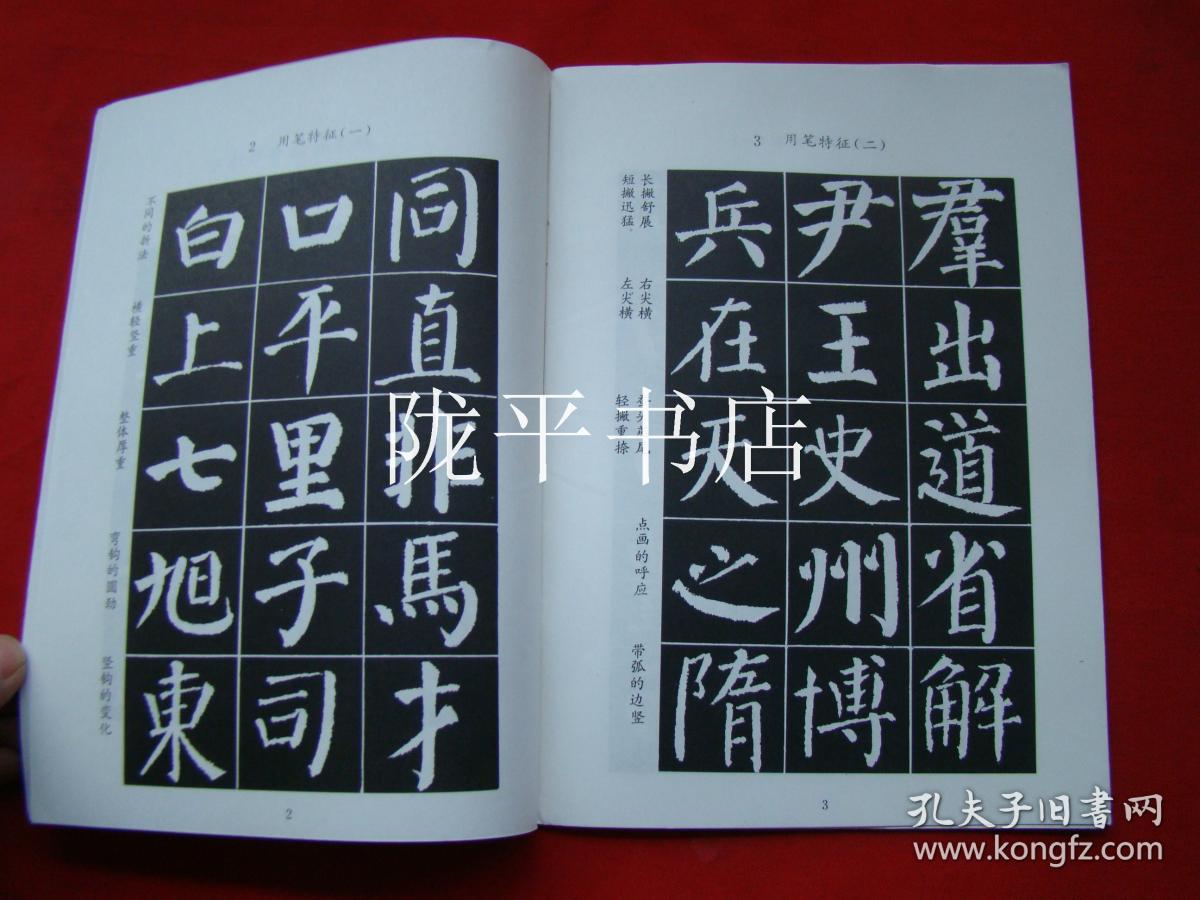 2 用笔特征(一)
不同的折法
白口同
横轻竖重
上平直
整体厚重
七里非
弯钩的圆劲
旭子馬
竖钩的变化
東司才
2
3 用笔特征(二)
长撇舒展
短撇迅猛。
兵尹羣
右尖横
左尖横
在王出
轻撇重捺
天史道
点画的呼应
之州省
带弧的边竖
隋博解
3
陇平书店
孔夫子旧書网
www.kongfz.com